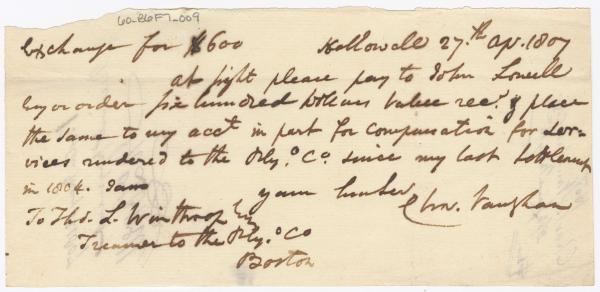 60-86F7-009
Exchange for $600 Hallowell 27.th Apr. 1807
at sight please pay to John Lowell
Esq or order six hundred Dollars value rec.d & place
the same to my acct. in part for compensation for ser-
vices rendered to the Ply.o Co. since my last settlement
in 1804. I am your humber
Chs. Vaughan
To Tho.s L. Winthrop Esq
Treasurer to the Ply.o Co
Boston